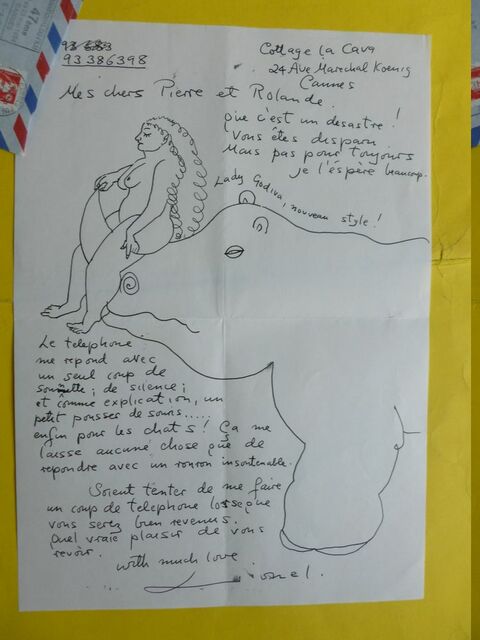 47ème
93386398
Cottage La Cava
24 Ave Marechal Koenig
Cannes
Mes chers Pierre et Rolande.
que c'est un desastre!
Vous êtes disparu
Mais pas pour toujours
je l'éspère beaucoup.
Lady Godiva, nouveau style!
Le telephone
me repond avec
un seul coup de
de silence;
et comme explication, un
petit pousser de souris.....
enfin pour les chats! Ça me
laisse aucune chose que de
repondre avec un ronron insoutenable.
Soient tenter de me faire
un coup de telephone lorseque
vous serez bien revenus.
Quel vraie plaisir de vous
revoir.
with much love